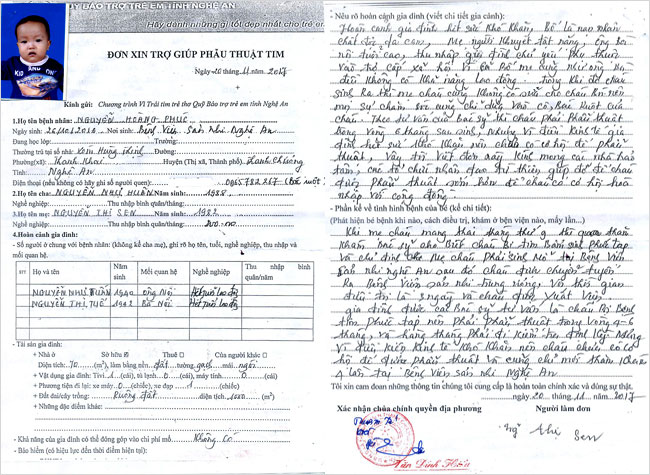 QUỸ BẢO TRỢ TRẺ EM TỈNH NGHỆ AN
Hãy dành những gì tốt đẹp nhất cho trẻ em
ĐƠN XIN TRỢ GIÚP PHẪU THUẬT TIM
Ngày 20 tháng 11 năm 2017
Kính gửi: Chương trình Vì Trái tim trẻ thơ Quỹ Bảo trợ trẻ em tỉnh Nghệ An
1.Họ tên bệnh nhân: NGUYỄN HOÀNG PHÚC
Ngày sinh: Nơi sinh: Bệnh Viện Sản Nhi Nghệ An
Đang học lớp: Trường:
Thường trú tại số nhà: Xóm Hưng Thịnh Đường:
Phường(xã): Thanh Khai Huyện (Thị xã, Thành phố): Thanh Chương
Tỉnh: Nghệ An
Điện thoại (nếu không có hãy ghi số người quen):
2.Họ tên cha: NGUYỄN NHƯ HUÂN Năm sinh: 1985
Nghề nghiệp: Thu nhập bình quân/tháng:
3.Họ tên mẹ: NGUYỄN THỊ SEN Năm sinh: 1982
Nghề nghiệp: Thu nhập bình quân/tháng: 200.000
4.Hoàn cảnh gia đình:
- Số người ở chung với bệnh nhân: (không kể cha mẹ), ghi rõ họ tên, tuổi, nghề nghiệp, thu nhập và
mối quan hệ.
STT Họ và tên Năm sinh Mối quan hệ Nghề nghiệp Thu nhập bình quân/tháng
NGUYỄN NHƯ TUẤN 1940 Ông Nội Hết tuổi lao động
NGUYỄN THỊ TUẾ 1942 Bà Nội Hết tuổi lao động
- Tài sản gia đình:
+ Nhà ở Sở hữu Thuê Của người khác
Diện tích: 70 (m²), làm bằng nền đất tường gạch mái ngói
+ Vật dụng gia đình: Tivi 1 (cái), tủ lạnh 0 (cái), máy tính 0 (cái)
+ Phương tiện đi lại: xe máy 0 (chiếc), xe đạp 1 (chiếc)
+ Đất đai/cây trồng: Ruộng đất diện tích 1000 (m²)
+ Những đặc điểm khác:
- Khả năng của gia đình có thể đóng góp vào chi phí mổ: Không có
- Bảo hiểm (có hiệu lực đến thời điểm hiện tại):
- Nêu rõ hoàn cảnh gia đình (viết chi tiết gia cảnh):
Hoàn cảnh gia đình hết sức khó khăn, Bố là nạn nhân
chất độc da cam, Mẹ người khuyết tật nặng, ông bà
nội tuổi cao, thu nhập gia đình chủ yếu phụ thuộc
vào trợ cấp xã hội vì cả Bố Mẹ cũng như ông bà
đều không có khả năng lao động. Trong khi đó cháu
sinh ra thì mẹ cháu cũng không có sữa cho cháu bú nên
mọi sự chăm sóc cũng chỉ dựa vào cô, bác ruột của
cháu. Theo tư vấn của Bác sỹ thì cháu phải phẫu thuật
trong vòng 6 tháng sau sinh, nhưng vì điều kinh tế gia
đình hết sức khó khăn nên chưa có cơ hội để phẫu
thuật. Vậy tôi viết đơn này kính mong các nhà hảo
tâm, các tổ chức nhân đạo từ thiện giúp đỡ để cháu
được phẫu thuật sớm hơn để cháu có cơ hội hòa
nhập với cộng đồng.
- Phần kể về tình hình bệnh của bé (kể chi tiết):
(Phát hiện bé bệnh khi nào, cách điều trị, khám ở bệnh viện nào, mấy lần...)
Khi mẹ cháu mang thai tháng thứ 9 thì qua thăm
khám bác sỹ cho biết cháu bị tim bẩm sinh phức tạp
và chỉ định cho mẹ cháu phải sinh mổ tại Bệnh Viện
sản nhi Nghệ An sau đó cháu được chuyển tuyến
ra Bệnh Viện sản nhi trung ương, và thời gian
điều trị là 5 ngày và cháu được xuất viện.
gia đình được các Bác sỹ tư vấn là cháu bị bệnh
tim phức tạp nên phải phẫu thuật trong vòng 4-6
tháng, và hàng tháng phải đi kiểm tra định kỳ. Nhưng
vì điều kiện kinh tế khó khăn nên cháu chưa có cơ
hội để được phẫu thuật và cũng chỉ mới thăm khám
lần tại Bệnh viện sản nhi Nghệ An
Tôi xin cam đoan những thông tin chúng tôi cung cấp là hoàn toàn chính xác và đúng sự thật.
ngày 20 tháng 11 năm 2017
Xác nhận của chính quyền địa phương Người làm đơn
Sen
Trần Đình Hiền